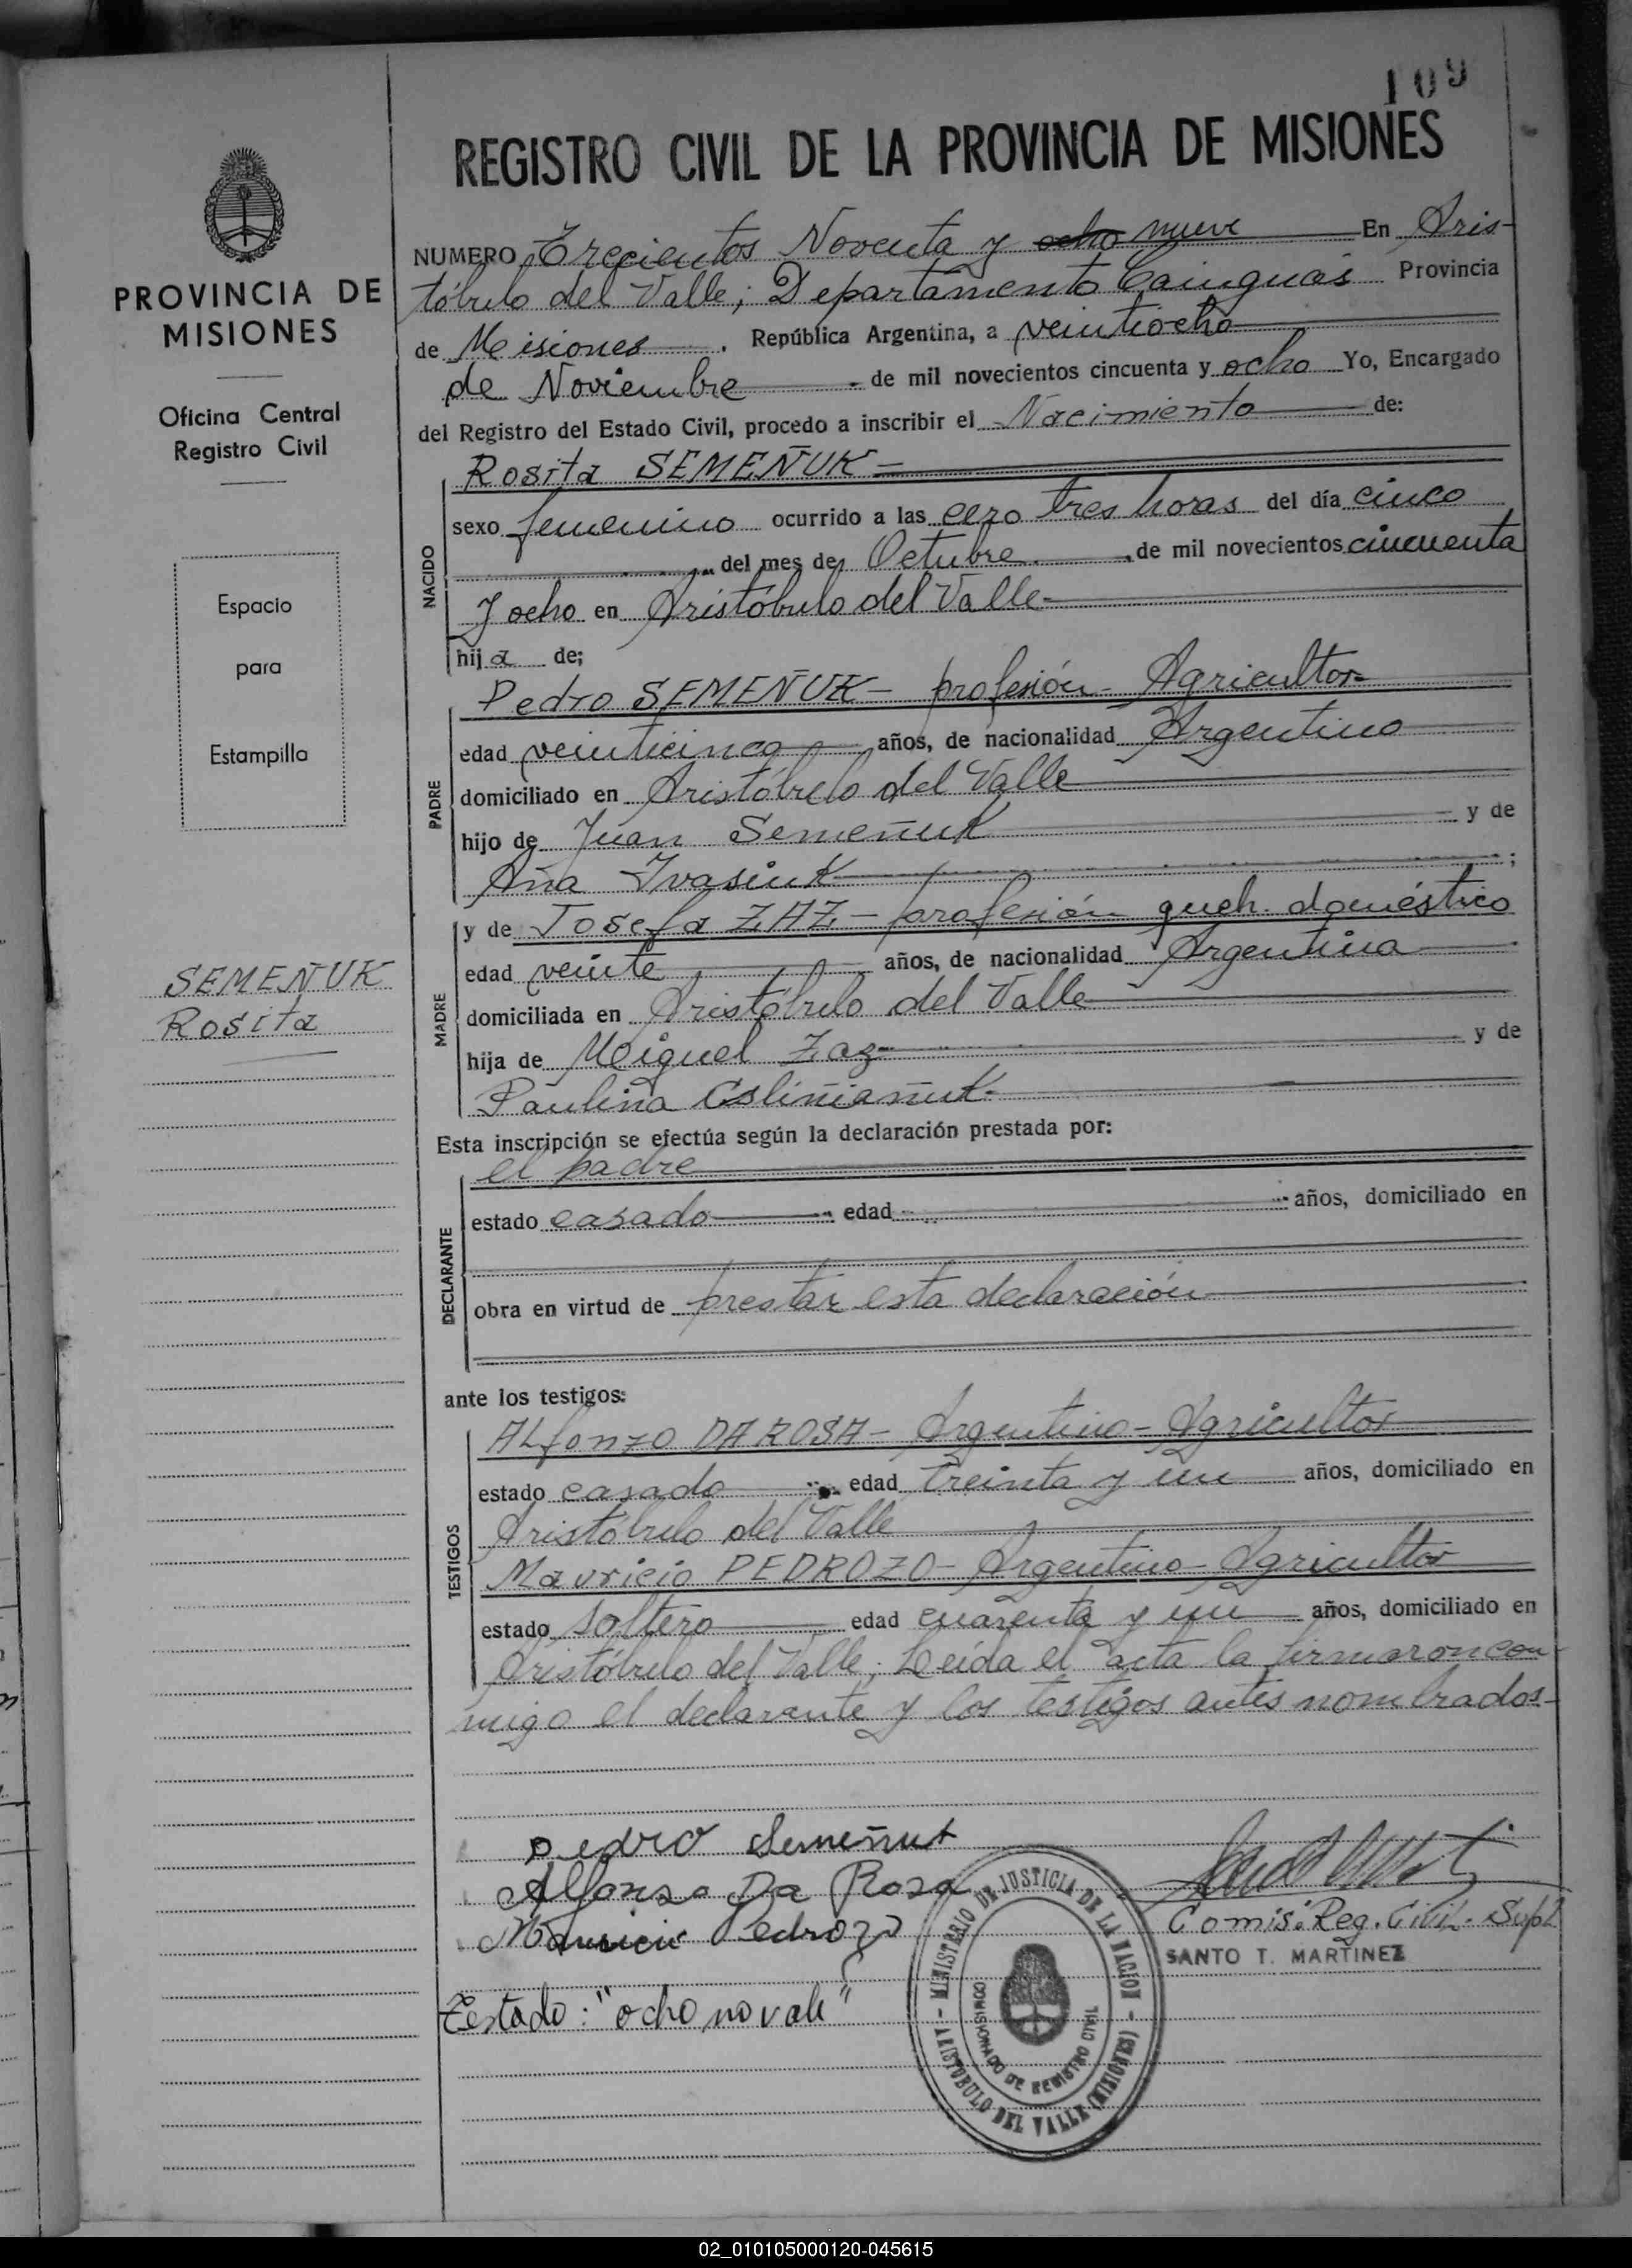 109
REGISTRO CIVIL DE LA PROVINCIA DE MISIONES
PROVINCIA DE
MISIONES
Oficina Central
Registro Civil
Espacio
para
Estampilla
SEMEÑUK
Rosita
NUMERO Trecientos Noventa y ocho nueve En Aris-
tóbulo del Valle; Departamento Cainguás Provincia
de Misiones . República Argentina, a veintiocho
de Noviembre de mil novecientos cincuenta y ocho Yo, Encargado
del Registro del Estado Civil, procedo a inscribir el Nacimiento de:
NACIDO
Rosita SEMEÑUK
sexo femenino ocurrido a las cero tres horas del día cinco
del mes de Octubre de mil novecientos cincuenta
y ocho en Aristóbulo del Valle
hija de;
PADRE
Pedro SEMEÑUK - profesión - Agricultor
edad veinticinco años, de nacionalidad Argentino
domiciliado en Aristóbulo del Valle
hijo de Juan Semeñuk y de
Ana Ivasiuk ;
MADRE
y de Josefa ZAZ - profesión queh. doméstico
edad veinte años, de nacionalidad Argentina
domiciliada en Aristóbulo del Valle
hija de Miguel Zaz y de
Paulina
Esta inscripción se efectúa según la declaración prestada por:
DECLARANTE
el padre
estado casado edad años, domiciliado en
obra en virtud de prestar esta declaración
ante los testigos:
TESTIGOS
ALfonzo DA ROSA - Argentino - Agricultor
estado casado edad treinta y un años, domiciliado en
Aristóbulo del Valle
Mauricio PEDROZO - Argentino - Agricultor
estado soltero edad cuarenta y un años, domiciliado en
Aristóbulo del Valle; Leída el acta la firmaron con-
migo el declarante y los testigos antes nombrados-
Pedro Semeñuk
Alfonso Da Rosa
Mauricio Pedrozo
Comis. Reg. Civil. Supl
SANTO T. MARTINEZ
Testado: "ocho no vale"
MINISTERIO DE JUSTICIA DE LA NACION - ARISTOBULO DEL VALLE (MISIONES) -
COMISIONADO DE REGISTRO CIVIL
02_010105000120-045615